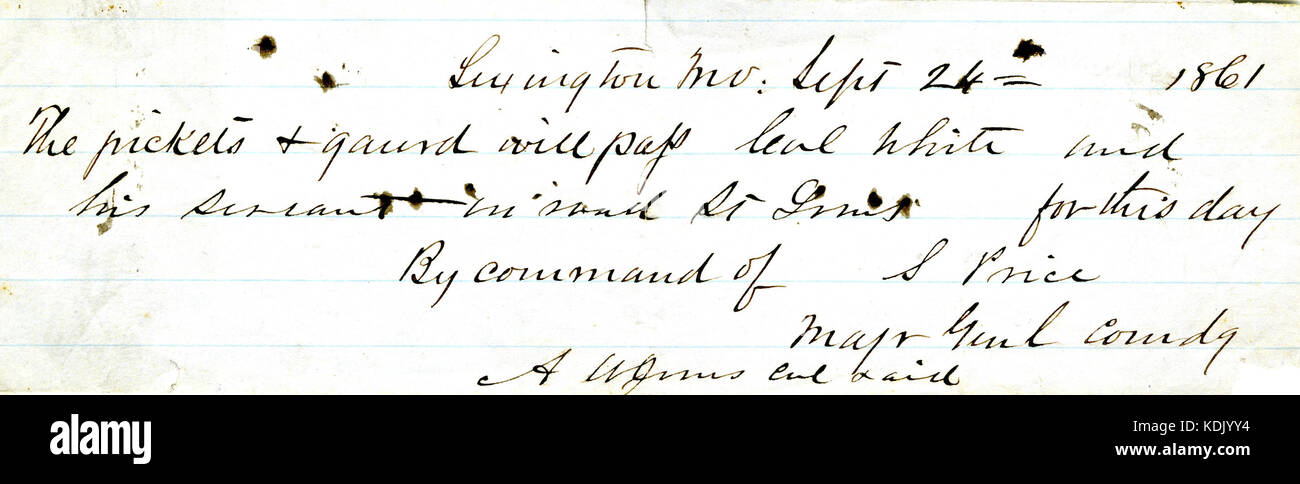 Lexington Mo: Sept 24 = 1861
The pickets & gaurd will pass Col White and
his servant St Louis for this day
By command of S Price
Majr Genl Comdg
A W Jones Col & aid
alamy
alamy
Image ID: KDJYY4
www.alamy.com